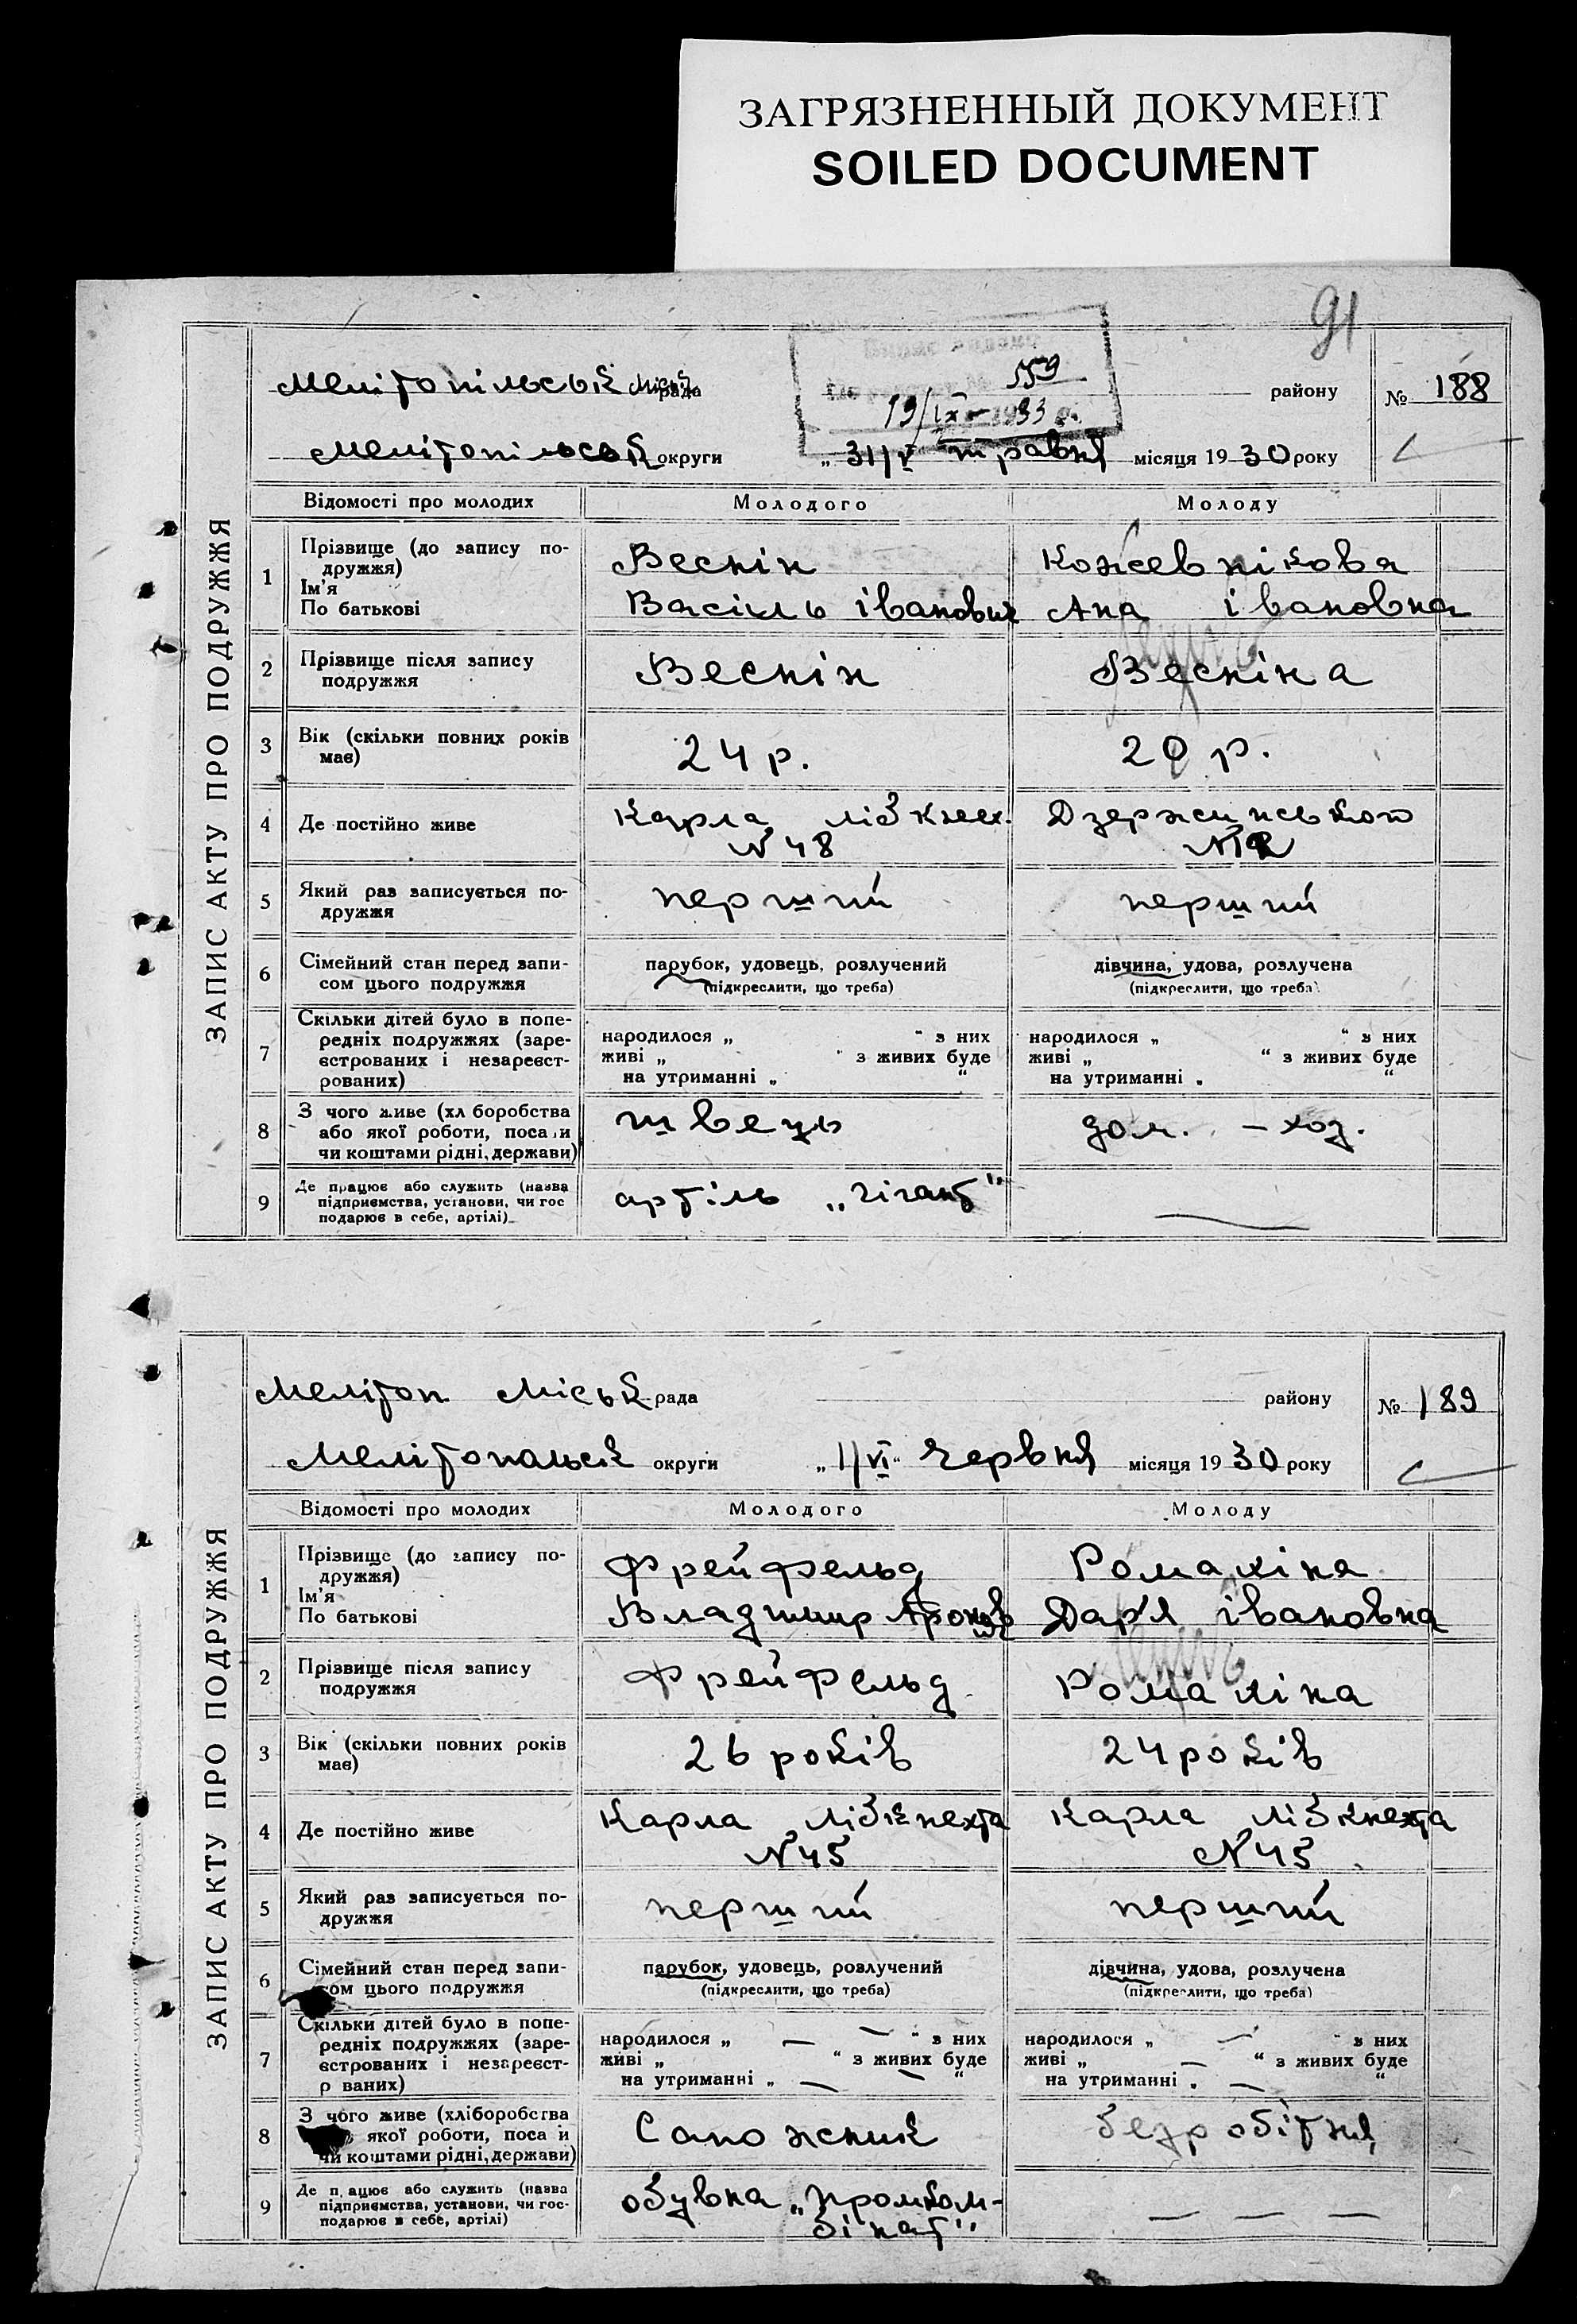 ЗАГРЯЗНЕННЫЙ ДОКУМЕНТ
SOILED DOCUMENT
91
ЗАПИС АКТУ ПРО ПОДРУЖЖЯ
559
19/IX - 1933 р.
Мелітопільськ міськ рада району № 188
Мелітопільськ округи „31/V травня місяця 1930 року
Відомості про молодих Молодого Молоду
1 Прізвище (до запису подружжя) Веснін Кожевнікова
Ім'я
По батькові Васіль івановіч Ана івановна
2 Прізвище після запису Веснін Весніна
подружжя
3 Вік (скільки повних років 24 р. 20 р.
має)
4 Де постійно живе Карла Лібкнех. Дзержинського
N 48
5 Який раз записується по- перший перший
дружжя
6 Сімейний стан перед запи- парубок, удовець, розлучений дівчина, удова, розлучена
сом цього подружжя (підкреслити, що треба) (підкреслити, що треба)
7 Скільки дітей було в попе-
редніх подружжях (заре- народилося „ “ з них народилося „ “ з них
єстрованих і незареєст- живі „ “ з живих буде живі „ “ з живих буде
рованих) на утриманні „ “ на утриманні „ “
8 З чого живе (хл боробства швець дом. - хоз.
або якої роботи, поса и
чи коштами рідні, держави)
9 Де працює або служить (назва артіль „гігант“ —
підприємства, установи, чи гос
подарює в себе, артілі)
ЗАПИС АКТУ ПРО ПОДРУЖЖЯ
Мелітоп Міськ рада району № 189
Мелітопольск округи „1/VI“ Червня місяця 1930 року
Відомості про молодих Молодого Молоду
1 Прізвище (до запису по- Фрейфельд Ромакіна
дружжя)
Ім'я
По батькові Владимир Дар'я івановна
2 Прізвище після запису Фрейфельд Ромакіна
подружжя
3 Вік (скільки повних років 26 років 24 років
має)
4 Де постійно живе Карла Лібкнехта Карла Лібкнехта
N 45 N 45
5 Який раз записується по- перший перший
дружжя
6 Сімейний стан перед запи- парубок, удовець, розлучений дівчина, удова, розлучена
сом цього подружжя (підкреслити, що треба) (підкреслити, що треба)
7 Скільки дітей було в попе-
редніх подружжях (заре- народилося „ — — “ з них народилося „ — “ з них
єстрованих і незареєст- живі „ “ з живих буде живі „ — “ з живих буде
р ваних) на утриманні „ — — “ на утриманні „ — “
8 З чого живе (хліборобства Сапожник безробітня
якої роботи, поса и
чи коштами рідні, держави)
9 Де п ацює або служить (назва обувна „промком- — — —
підприємства, установи, чи гос- бінат“
подарює в себе, артілі)